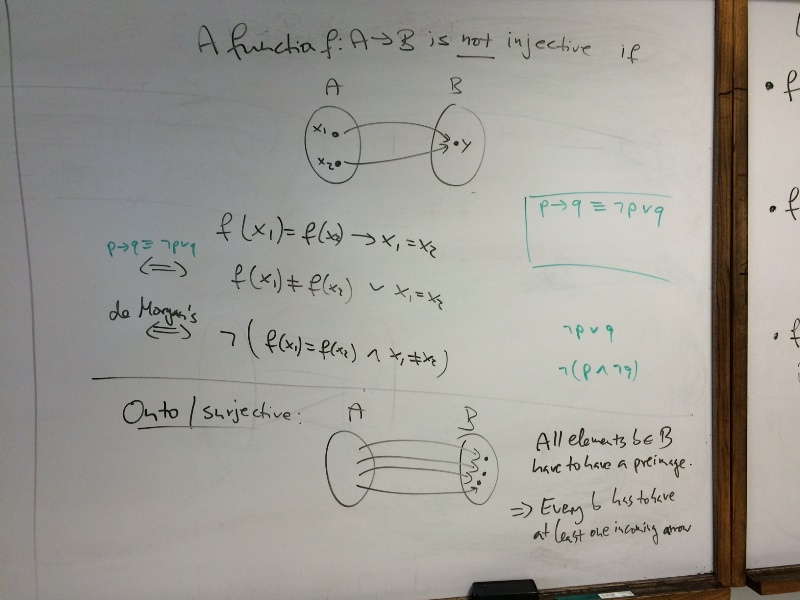 A function f: A → B is not injective if
A B
x₁
x₂
y
p→q ≡ ¬p∨q
f(x₁) = f(x₂) → x₁ = x₂
p→q ≡ ¬p∨q
⟺
f(x₁) ≠ f(x₂) ∨ x₁ = x₂
de Morgan's
⟺
¬(f(x₁) = f(x₂) ∧ x₁ ≠ x₂)
¬p∨q
¬(p∧¬q)
Onto / surjective:
A B
All elements b ∈ B
have to have a preimage.
⇒ Every b has to have
at least one incoming arrow
• f
• f
• f